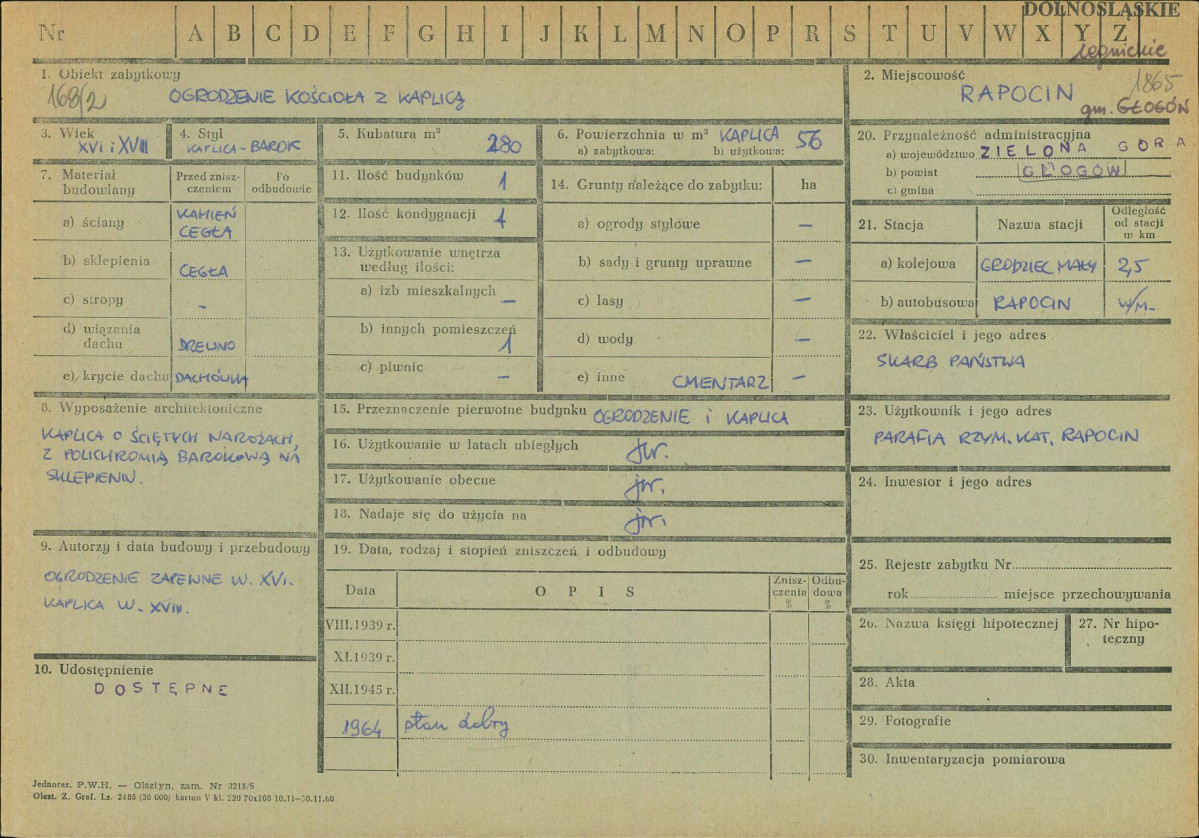 DOLNOŚLĄSKIE
Nr A B C D E F G H I J K L M N O P R S T U V W X Y Z
legnickie
1. Obiekt zabytkowy
168/2 OGRODZENIE KOŚCIOŁA Z KAPLICĄ
2. Miejscowość 1865
RAPOCIN
gm. GŁOGÓW
3. Wiek
XVI i XVIII
4. Styl
KAPLICA - BAROK
5. Kubatura m³
280
6. Powierzchnia w m² KAPLICA 56
a) zabytkowa: b) użytkowa:
20. Przynależność administracyjna
a) województwo ZIELONA GÓRA
b) powiat GŁOGÓW
c) gmina
7. Materiał budowlany
Przed zniszczeniem
Po odbudowie
a) ściany KAMIEŃ CEGŁA
b) sklepienia CEGŁA
c) stropy -
d) wiązania dachu DREWNO
e) krycie dachu DACHÓWKA
11. Ilość budynków 1
12. Ilość kondygnacji 1
13. Użytkowanie wnętrza
według ilości:
a) izb mieszkalnych —
b) innych pomieszczeń 1
c) piwnic —
14. Grunty należące do zabytku: ha
a) ogrody stylowe —
b) sady i grunty uprawne —
c) lasy —
d) wody —
e) inne CMENTARZ —
21. Stacja Nazwa stacji Odległość od stacji w km
a) kolejowa GRODZIEC MAŁY 2,5
b) autobusowa RAPOCIN W/M-
22. Właściciel i jego adres
SKARB PAŃSTWA
8. Wyposażenie architektoniczne
KAPLICA O ŚCIĘTYCH NAROŻACH,
Z POLICHROMIĄ BAROKOWĄ NA
SKLEPIENIU.
15. Przeznaczenie pierwotne budynku OGRODZENIE i KAPLICA
16. Użytkowanie w latach ubiegłych jw.
17. Użytkowanie obecne jw.
18. Nadaje się do użycia na jw.
23. Użytkownik i jego adres
PARAFIA RZYM. KAT. RAPOCIN
24. Inwestor i jego adres
9. Autorzy i data budowy i przebudowy
OGRODZENIE ZAPEWNE W. XVI.
KAPLICA W. XVIII.
10. Udostępnienie
DOSTĘPNE
19. Data, rodzaj i stopień zniszczeń i odbudowy
Data OPIS Zniszczenia % Odbudowa %
VIII.1939 r.
XI.1939 r.
XII.1945 r.
1964 stan dobry
25. Rejestr zabytku Nr
rok miejsce przechowywania
26. Nazwa księgi hipotecznej
27. Nr hipoteczny
28. Akta
29. Fotografie
30. Inwentaryzacja pomiarowa
Jednoraz. P.W.H. — Olsztyn, zam. Nr 3215/S
Olszt. Z. Graf. Lz. 2485 (30 000) karton V kl. 220 70x100 10.11—30.11.60